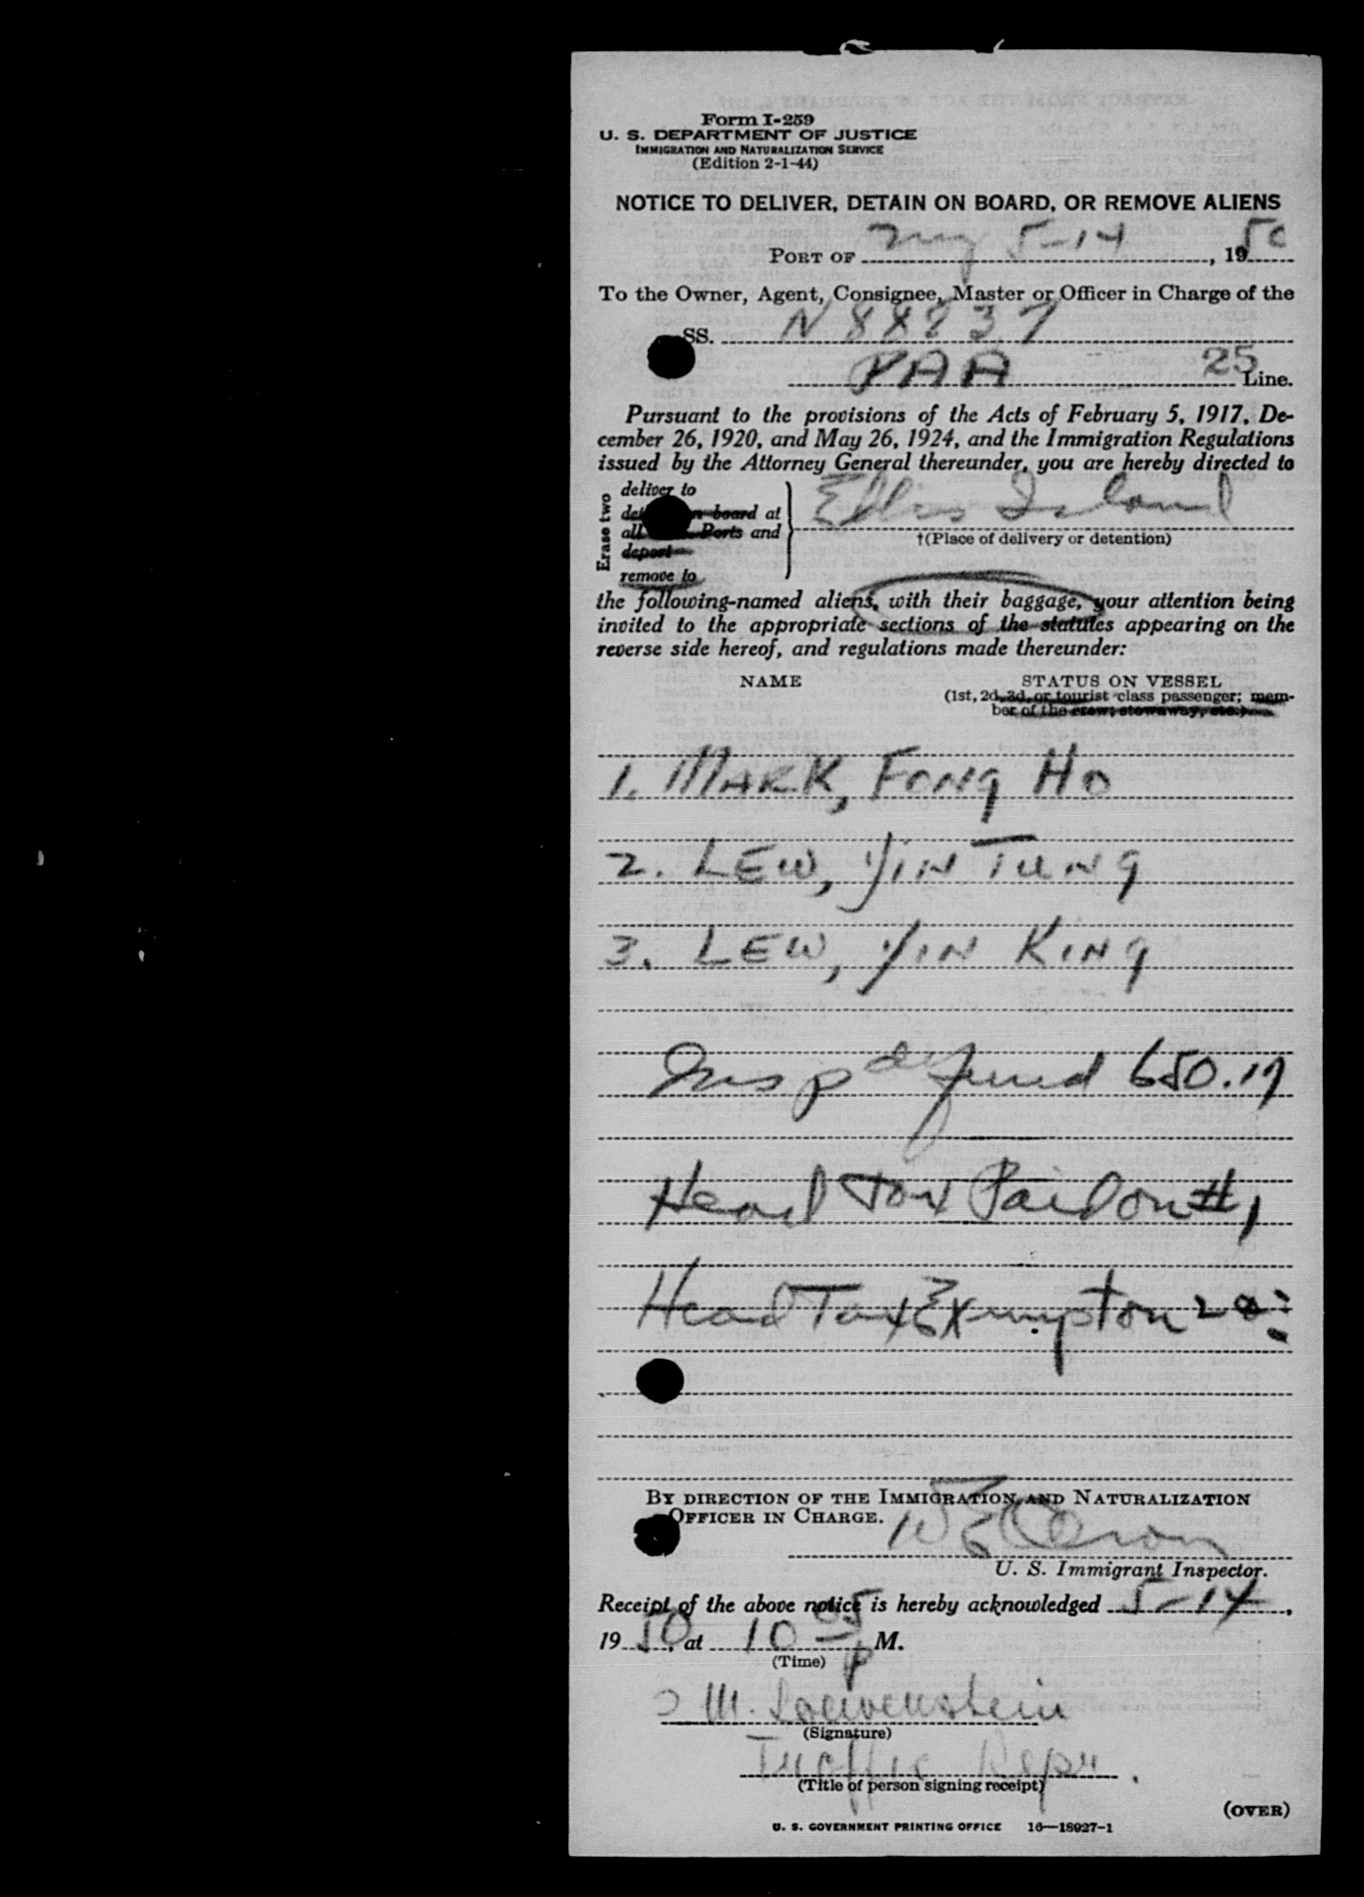 Form I-259
U. S. DEPARTMENT OF JUSTICE
IMMIGRATION AND NATURALIZATION SERVICE
(Edition 2-1-44)
NOTICE TO DELIVER, DETAIN ON BOARD, OR REMOVE ALIENS
PORT OF NY 5-14, 1950
To the Owner, Agent, Consignee, Master or Officer in Charge of the
SS. N 88837
PAA 25 Line.
Pursuant to the provisions of the Acts of February 5, 1917, De-
cember 26, 1920, and May 26, 1924, and the Immigration Regulations
issued by the Attorney General thereunder, you are hereby directed to
Erase two
deliver to
board at
all Ports and
deport
remove to
Ellis Island
†(Place of delivery or detention)
the following-named aliens, with their baggage, your attention being
invited to the appropriate sections of the statutes appearing on the
reverse side hereof, and regulations made thereunder:
NAME STATUS ON VESSEL
(1st, 2d, 3d, or tourist class passenger; mem-
ber of the crew; stowaway, etc.)
1. MARK, FONG HO
2. LEW, YIN TUNG
3. LEW, YIN KING
Insp deferred 650.17
Head Tax Paid on #1
Head Tax Exempt on 2
BY DIRECTION OF THE IMMIGRATION AND NATURALIZATION
OFFICER IN CHARGE.
U. S. Immigrant Inspector.
Receipt of the above notice is hereby acknowledged 5-14,
1950, at 10 05 P M.
(Time)
M. Loewenstein
(Signature)
Traffic Repr.
(Title of person signing receipt)
(OVER)
U. S. GOVERNMENT PRINTING OFFICE 16—18927-1